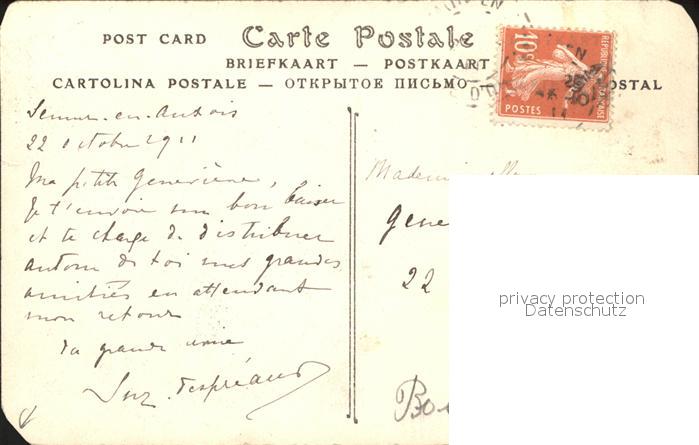 POST CARD Carte Postale
BRIEFKAART — POSTKAART
CARTOLINA POSTALE — ОТКРЫТОЕ ПИСЬМО OSTAL
10c
POSTES
Semur-en-Auxois
22 octobre 1911
Ma petite Geneviève,
Je t'envoie un bon baiser
et te charge de distribuer
autour de toi mes grandes
amitiés en attendant
mon retour
Ta grande amie
Suz. Despréaux
Gene
22
privacy protection
Datenschutz